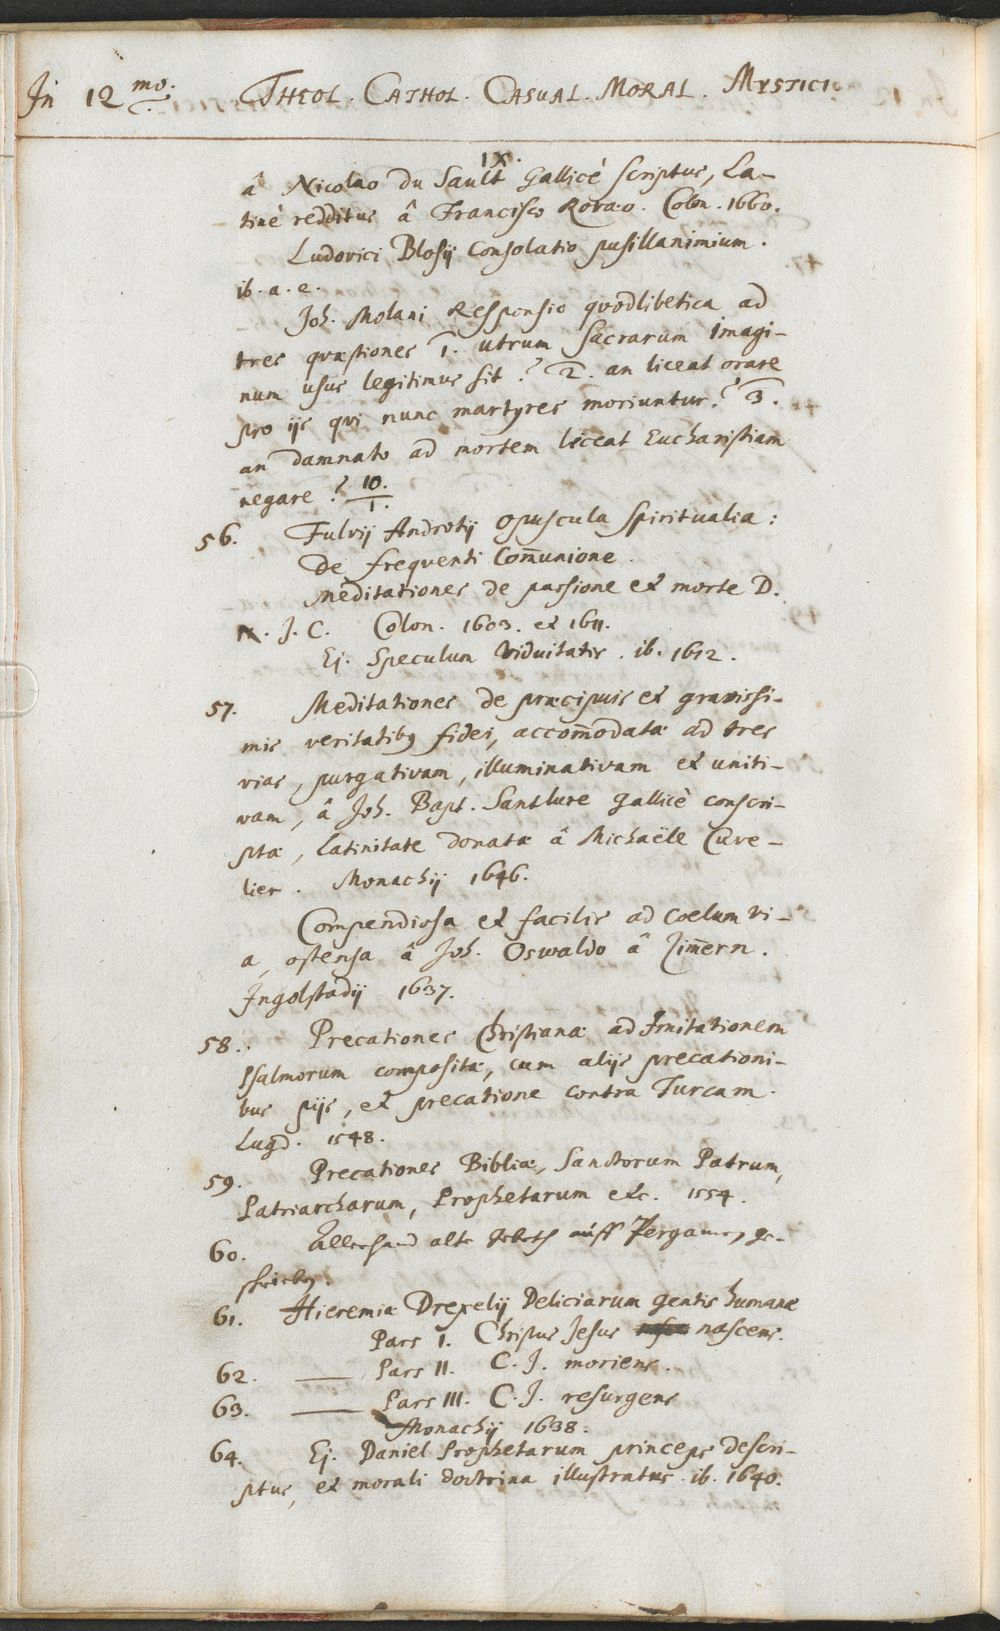 In 12mo. THEOL. CATHOL. CASUAL. MORAL. MYSTICI.
IX.
â Nicolao du Sault Gallicè scriptus, La-
tinè redditus â Francisco Rovæo. Colon. 1660.
Ludovici Blosij Consolatio pusillanimium.
ib. a. e.
Joh. Molani Responsio quodlibetica ad
tres quæstiones 1. utrum sacrarum imagi-
num usus legitimus sit? 2. an liceat orare
pro ijs qvi nunc martyres moriuntur? 3.
an damnato ad mortem liceat Eucharistiam
negare? 10.
1.
56. Fulvij Androtij Opuscula Spiritualia:
De frequenti Com̄unione.
Meditationes de passione et morte D.
N. J. C. Colon. 1603. et 1611.
Ej. Speculum Viduitatis. ib. 1612.
57. Meditationes de præcipuis et gravissi-
mis veritatibq fidei, accom̄odatæ ad tres
vias, purgativam, illuminativam et uniti-
vam, â Joh. Bapt. Santlure gallicè conscri-
ptæ, latinitate donatæ â Michaële Cuve-
lier. Monachij 1646.
Compendiosa et facilis ad coelum vi-
a, ostensa â Joh. Oswaldo â Zim̄ern.
Ingolstadij 1637.
58. Precationes Christianæ ad Imitationem
Psalmorum compositæ, cum alijs precationi-
bus pijs, et precatione contra Turcam.
Lugd. 1548.
59. Precationes Bibliæ, Sanctorum Patrum,
Patriarcharum, Prophetarum etc. 1554.
60. Allerhand alte gebeth auff Pergamen ge-
schrieben.
61. Hieremiæ Drexelij Deliciarum gentis humanæ
Pars I. Christus Jesus nascens.
62. —— Pars II. C. J. moriens.
63. —— Pars III. C. J. resurgens
Monachij 1638.
64. Ej. Daniel Prophetarum princeps descri-
ptus, et morali doctrina illustratus. ib. 1640.